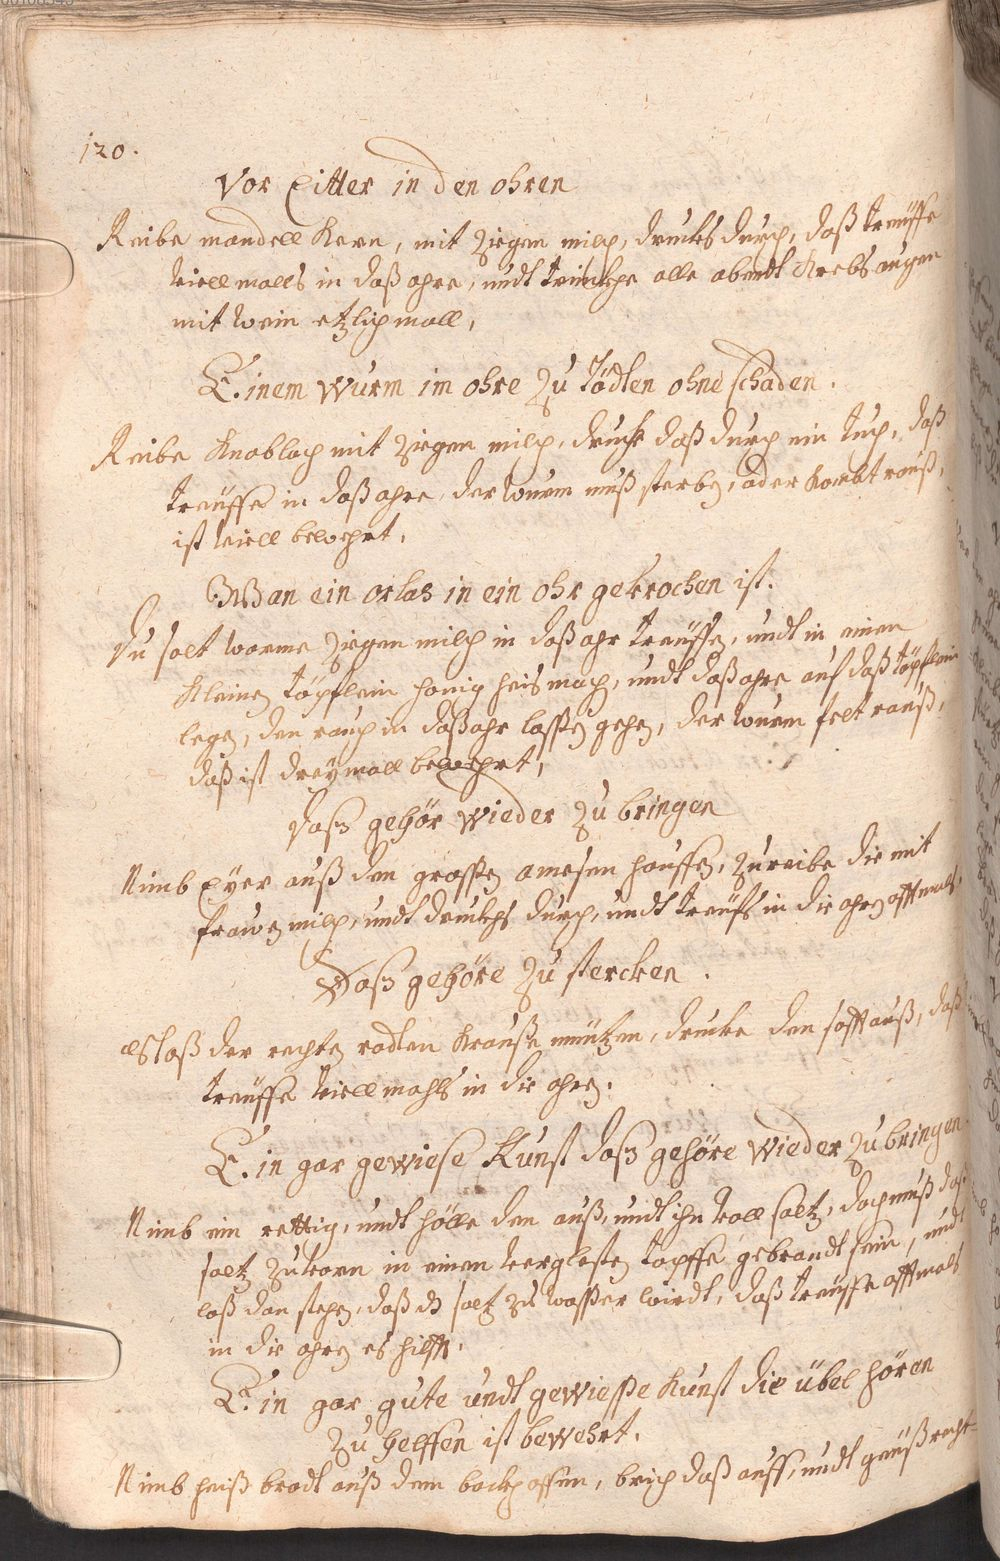 120.
Vor Eitter in den ohren
Reibe mandell Kern, mit Ziegen milch, druckes durch, daß treüffe
viell malls in daß ohre, undt trinckhe alle abendt Krebs augen
mit wein etzlich mall,
Einem Wurm im ohre Zu Tödten ohne schaden.
Reibe Knobloch mit Ziegen milch, drucke daß durch ein tuch, daß
treüffe in daß ohre, der wurm muß sterben, oder kombt rauß,
ist viell bewehrt,
Wan ein orlas in ein ohr gekrochen ist.
Du solt warme Ziegen milch in daß ohr treüffen, undt in einen
Kleinen töpflein honig heis mach, undt daß ohre auf daß töpflein
legen, den rauch in daß ohr lassen gehen, der wurm felt rauß,
daß ist dreymall bewehrt,
Daß gehör wieder Zu bringen
Nimb Eyer auß den grossen amesen hauffen, Zureibe die mit
frawen milch, undt druckhs durch, undt treüfs in die ohren offtmals.
Daß gehöre Zu stercken.
Stoß der rechten rodten Krause müntzen, drucke den safft auß, daß
treüffe viell mahls in die ohren.
Ein gar gewiese Kunst daß gehöre wieder Zu bringen
Nimb ein rettig, undt hölle den auß, undt ihn voll saltz, doch muß daß
saltz Zuvorn in einen verglasten topffe gebrandt sein, undt
laß dan stehen, daß dz saltz Zu wasser wirdt, daß treüffe offtmals
in die ohren es hilfft.
Ein gar gute undt gewieße Kunst die übel hören
Zu helffen ist bewehrt.
Nimb heiß brodt auß dem backoffen, brich daß auff, undt geüß recht-